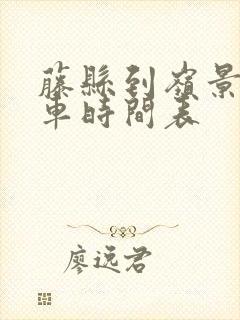 藤縣到嶺景
車時間表
廖远君